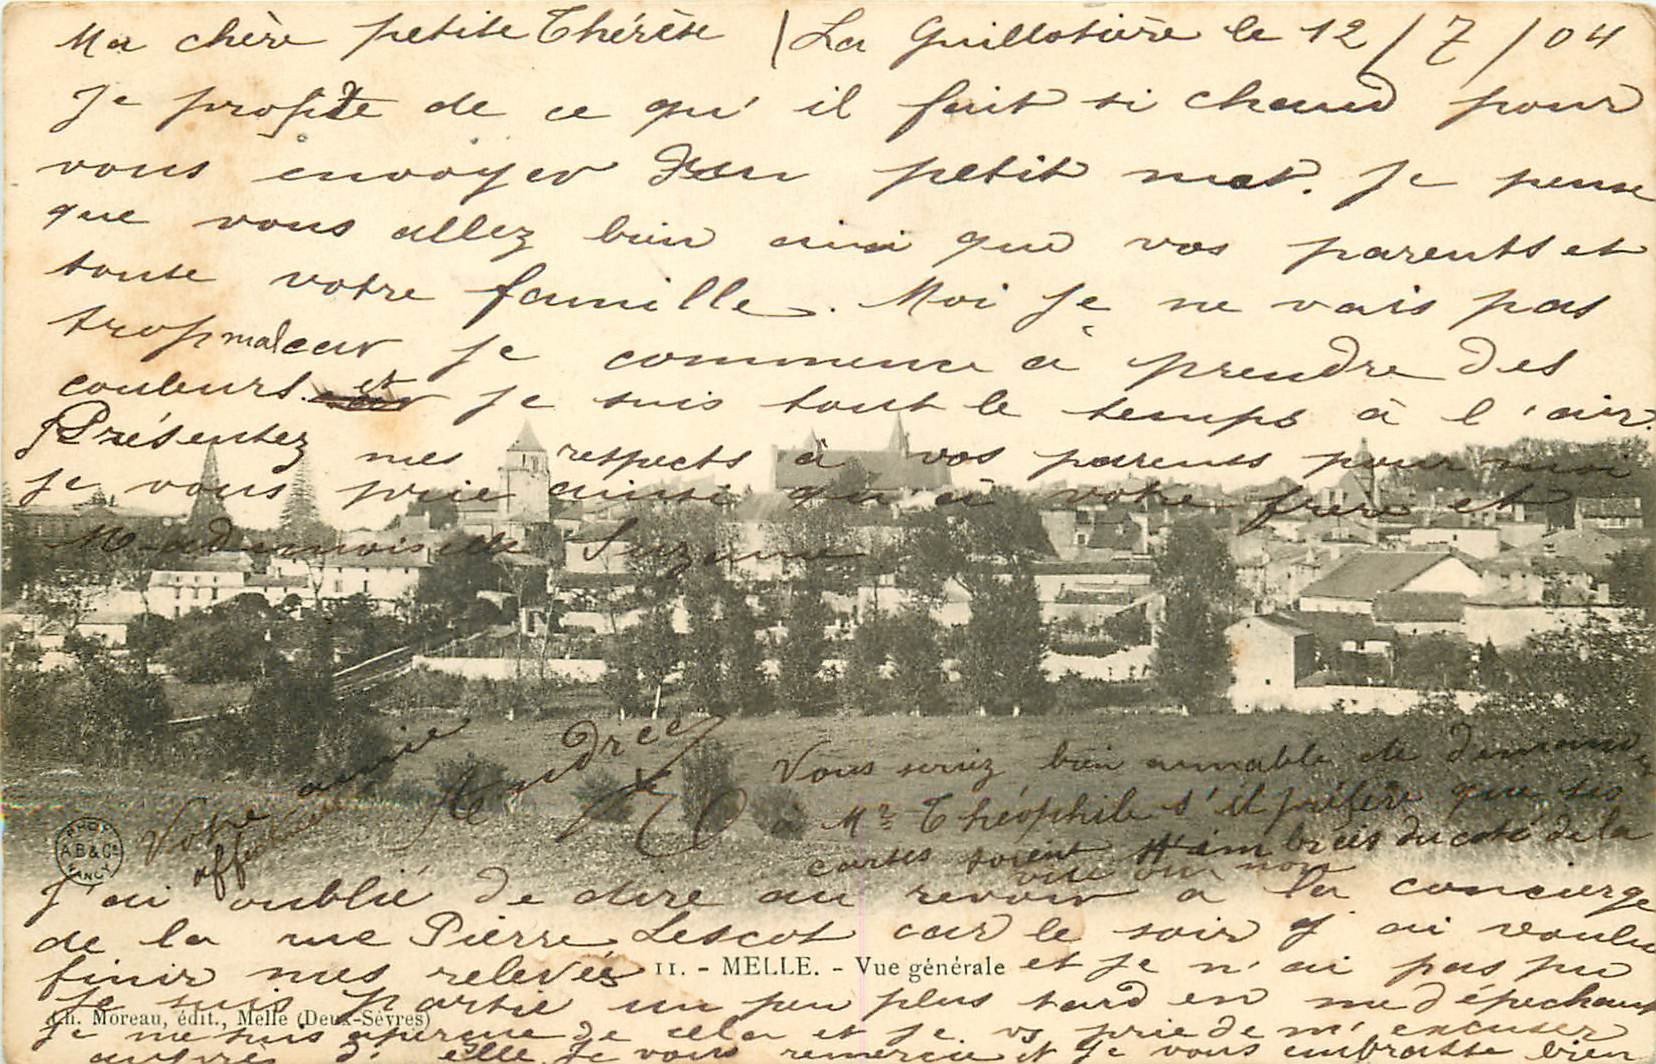 Ma chère petite Thérèse | La Guillotière le 12/7/04
Je profite de ce qu' il fait si chaud pour
vous envoyer un petit mot. Je pense
que vous allez bien ainsi que vos parents et
toute votre famille. Moi je ne vais pas
trop mal car je commence à prendre des
couleurs. et je suis tout le temps à l'air.
Présentez mes respects à vos parents pour moi
je vous prie ainsi qu'à votre frère et
Mademoiselle Suzanne
Votre amie
affectueuse
Andrée
Vous seriez bien aimable de demandez
à Mr Théophile s'il préfère que ses
cartes soient timbrées du coté de la
vue ou non
J'ai oublié de dire au revoir a la concierge
de la rue Pierre Lescot car le soir j'ai voulu
finir mes relevés et je n'ai pas pu
11. - MELLE. - Vue générale
je suis partie un peu plus tard en me dépechant
Ch. Moreau, édit., Melle (Deux-Sèvres)
je me suis aperçue de cela et je vs prie de m' excuser
auprès d' elle. Je vous remercie et je vous embrasse bien
PHOT
A.B & Cie
NANCY